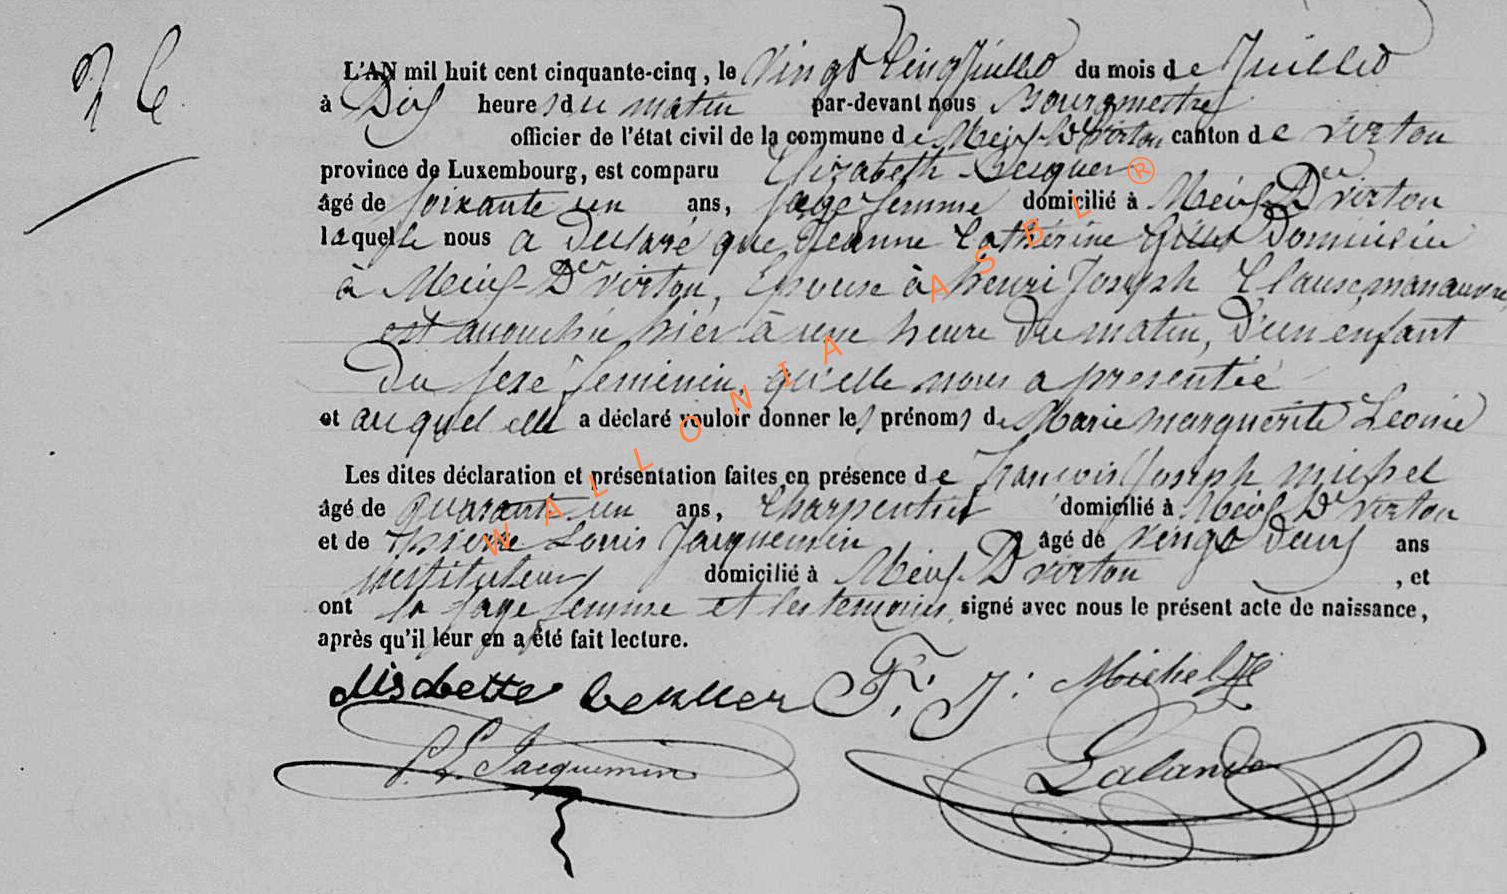 26
L'AN mil huit cent cinquante-cinq, le Vingt Cinq Juillet du mois de Juillet
à Dix heures du matin par-devant nous Bourgmestre
officier de l'état civil de la commune de Meix Dt Virton canton de virton
province de Luxembourg, est comparu Elizabeth Becquer
âgé de soixante un ans, sage femme domicilié à Meix Dt virton
laquelle nous a declaré que Jeanne Cathérine Gillet Domiciliée
à Meix Dt virton, Epouse à henri Joseph Clausse, manœuvre,
est accouchée hièr à une heure du matin, D'un enfant
Du sexe feminin, qu'elle nous a presentée
et auquel elle a déclaré vouloir donner les prénoms de Marie marguerite Leonie
Les dites déclaration et présentation faites en présence de francois Joseph michel
âgé de quarante un ans, Charpentier domicilié à Meix Dt virton
et de pierre Louis Jacquemin âgé de vingt Deux ans
instituteur domicilié à Meix Dt virton , et
ont la sage femme et les temoins, signé avec nous le présent acte de naissance,
après qu'il leur en a été fait lecture.
Lisbette bekker F. J: Michel
P. L. Jacquemin Lalande
WALLONIA ASBL ®